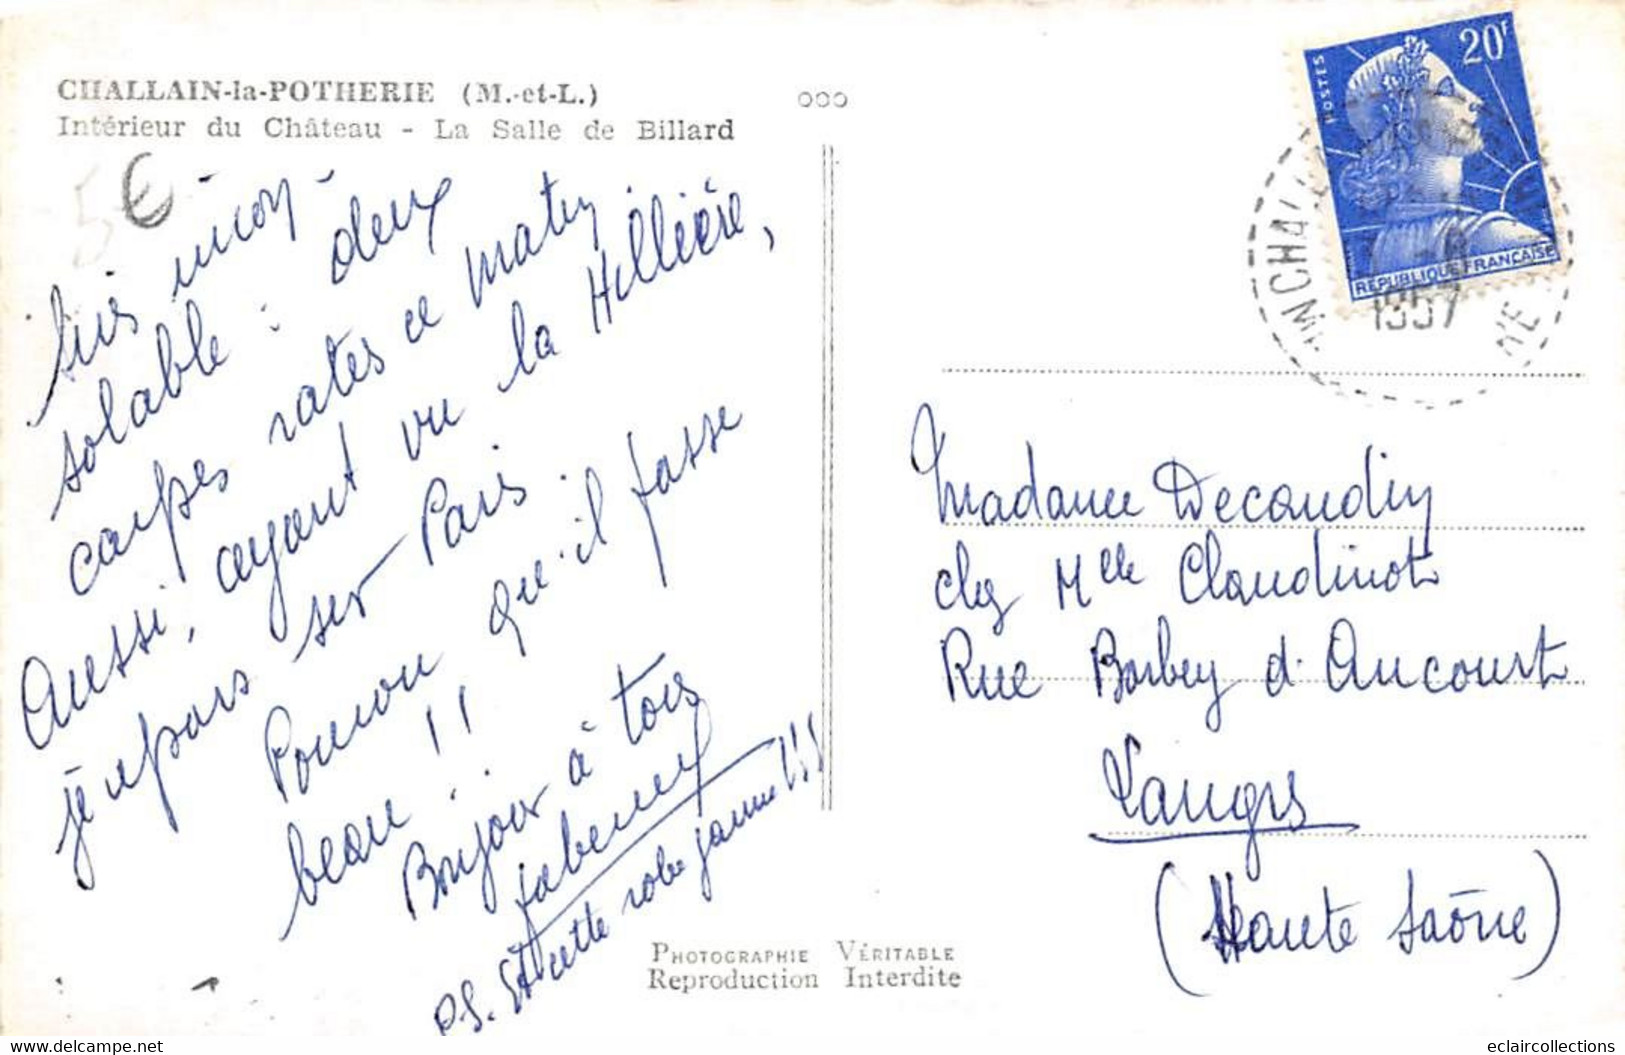 CHALLAIN-la-POTHERIE (M.-et-L.)
Intérieur du Château - La Salle de Billard
ooo
5 €
suis incon-
solable : deux
carpes ratées ce matin
Aussi, ayant vu la Hillière,
je repars sur Paris.
Pourvu qu'il fasse
beau !!
Bonjour à tous
P.S. Et cette robe jaune !!!
PHOTOGRAPHIE VÉRITABLE
Reproduction Interdite
20F
POSTES
RÉPUBLIQUE FRANÇAISE
1957
Madame Decaudin
chez Mlle Claudinot
Rue Barbey d'Aucourt
Langres
(Haute Saône)
eclaircollections
www.delcampe.net